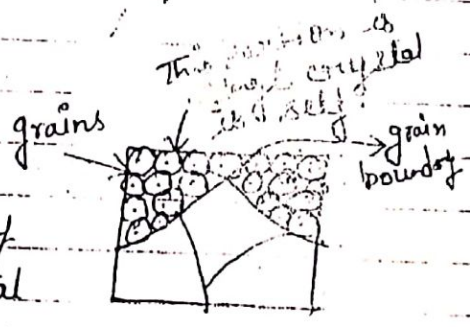 This portion is
that crystal
it self
grains
grain
boundry
al